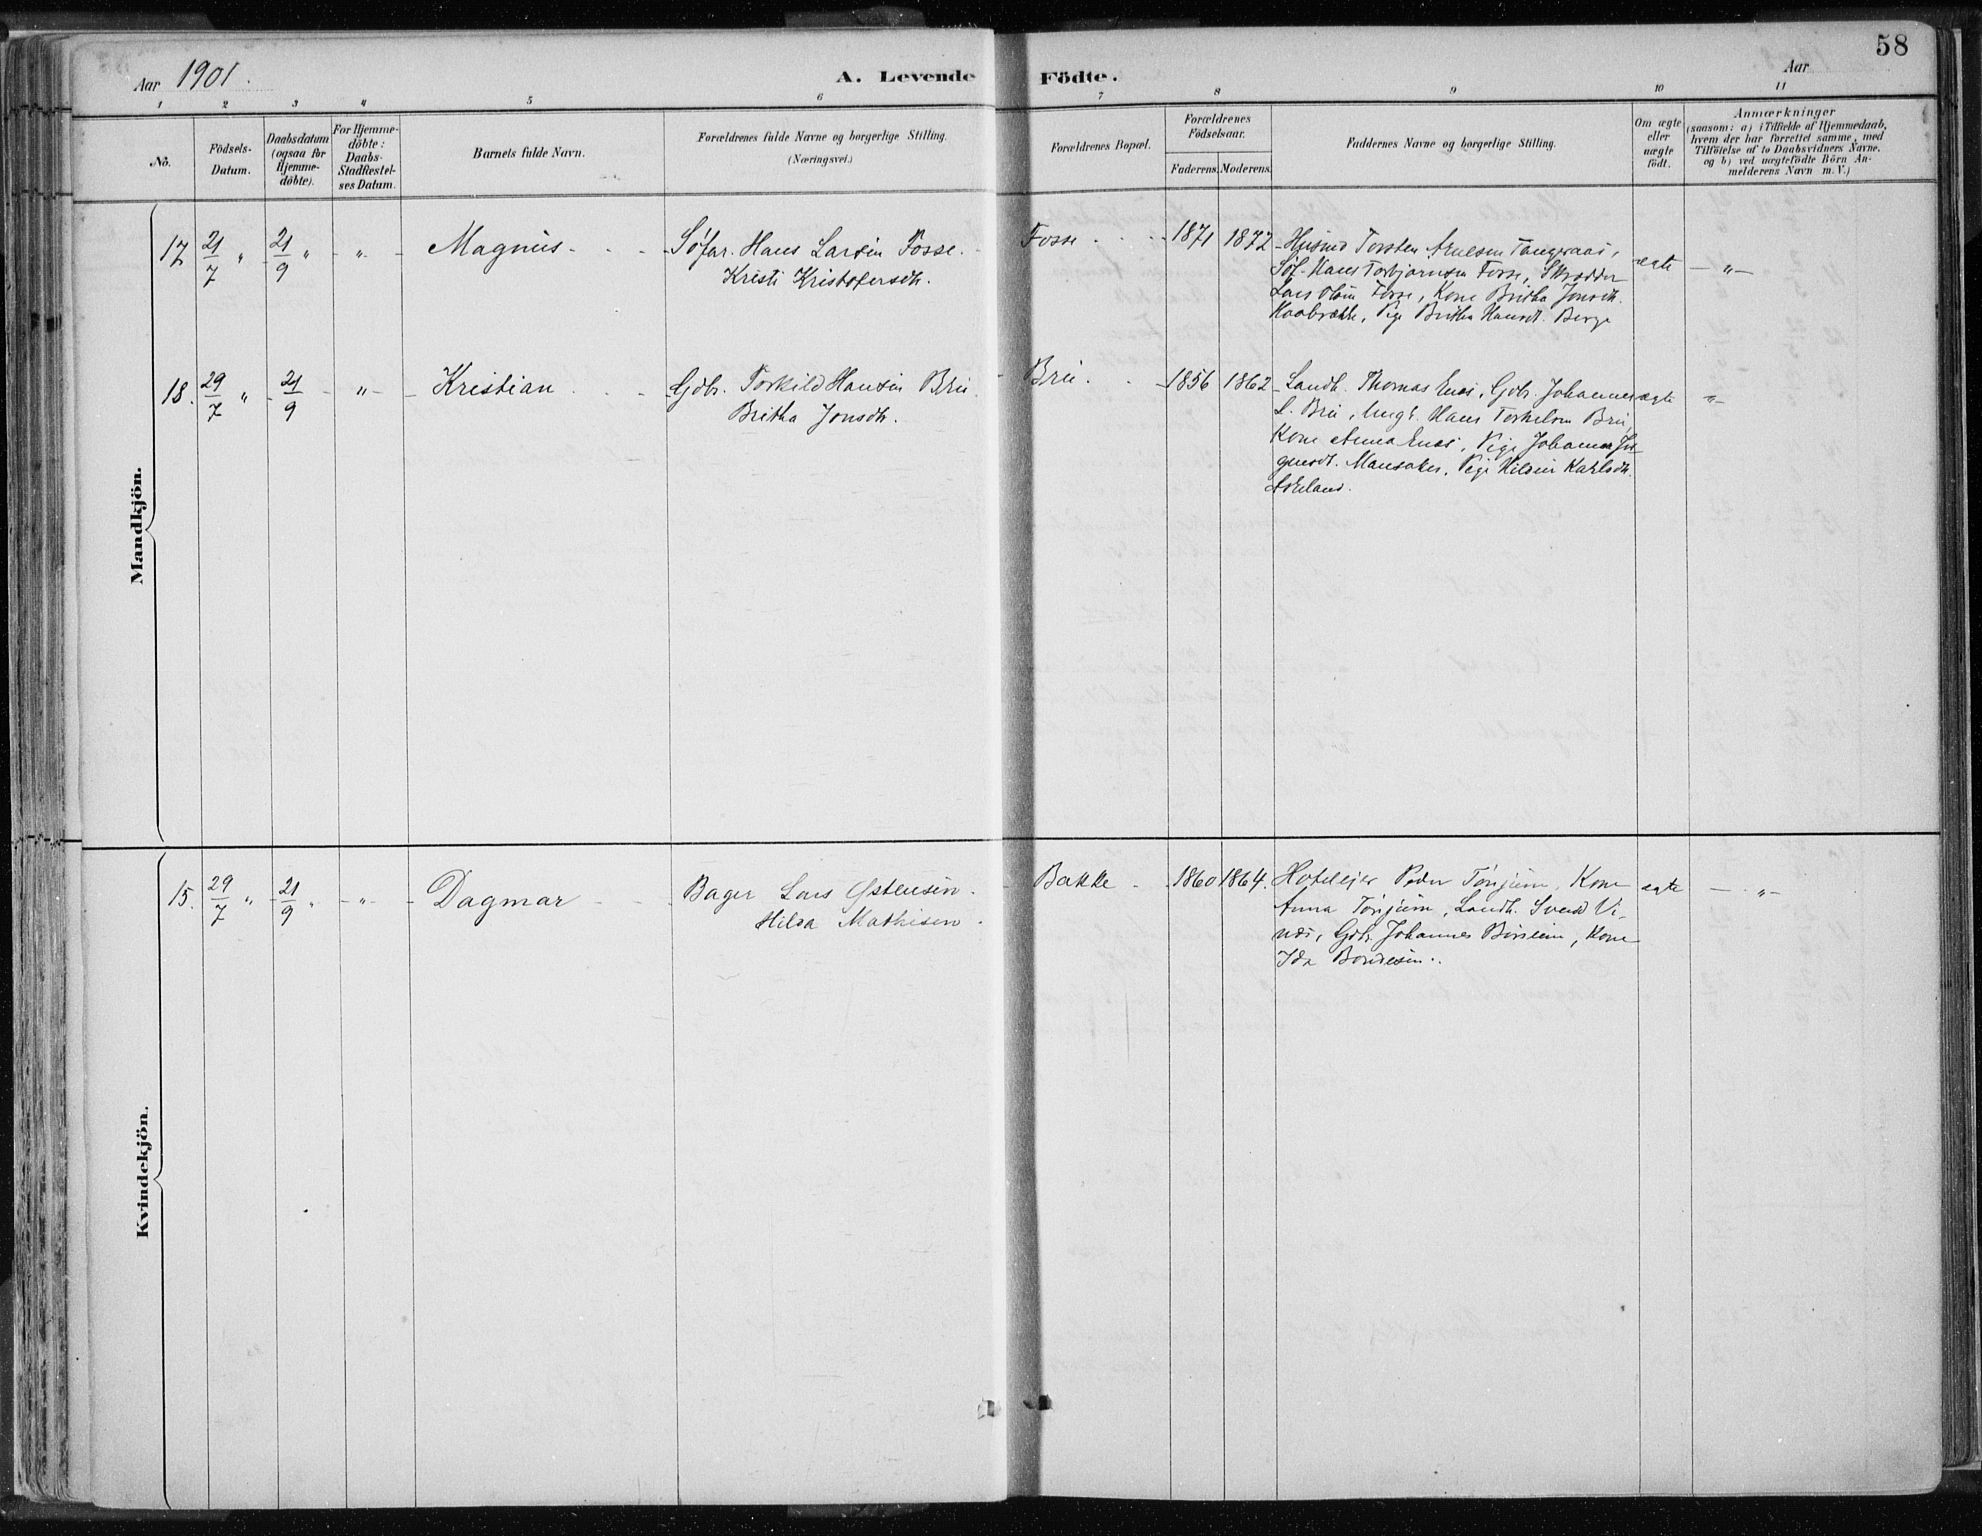 58
Aar 1901.
A. Levende Födte.
Aar
1 2 3 4 5 6 7 8 9 10 11
No.
Födsels-
Datum.
Daabsdatum
(ogsaa for
Hjemme-
döbte).
For Hjemme-
döbte:
Daabs-
Stadfæstel-
ses Datum.
Barnets fulde Navn.
Forældrenes fulde Navne og borgerlige Stilling.
(Næringsvei.)
Forældrenes Bopæl.
Forældrenes
Födselsaar.
Faderens. Moderens.
Faddernes Navne og borgerlige Stilling.
Om ægte
eller
uægte
födt.
Anmærkninger
(saasom: a) i Tilfælde af Hjemmedaab,
hvem der har forrettet samme, med
Tilföielse af to Daabsvidners Navne.
og b) ved uægtefödte Börn An-
melderens Navn m. V.)
Mandkjön.
17 21/7 " 21/9 " - " - Magnus - - - Søfar. Hans Larsen Fosse. Fosse - - 1871 1872 - Husmd Torsten Arnesen
Kristi Kristofersdtr.
Søf. Hans Torbjørnsen Fosse, Skrædder
Lars Olsen Fosse, Kone Britha Jonsdt.
Pige Britha Hansdt. Berge
ægte - " -
18. 29/7 " 21/9 - " - Kristian - - Gdbr. Torkild Hansen Bru Bru. - 1856 1862 - Landh. Thomas Enæs, Gdbr. Johannes
Britha Jonsdtr.
L. Bru, Ungk. Hans Torkelsen Bru,
Kone Anna Enæs, Pige Johanna
Mansaker, Pige Karlsdtr.
ægte " -
Kvindekjön.
15. 29/7 " 21/9 " - " - Dagmar - - - Bager Lars Østensen. - Bakke - 1860 1864. Hoteleier Peder Tønjum, Kone
Hilda Mathisen.
Anna Tønjum, Landh. Svend Vi-
næs, Gdbr. Johannes Børsheim, Kone
Ida
ægte - " -